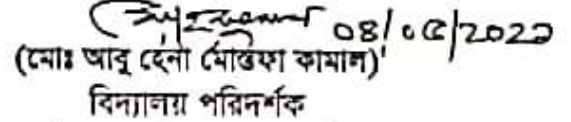 08/০৫/2022
(মোঃ আবু হেনা মোস্তফা কামাল)
বিদ্যালয় পরিদর্শক